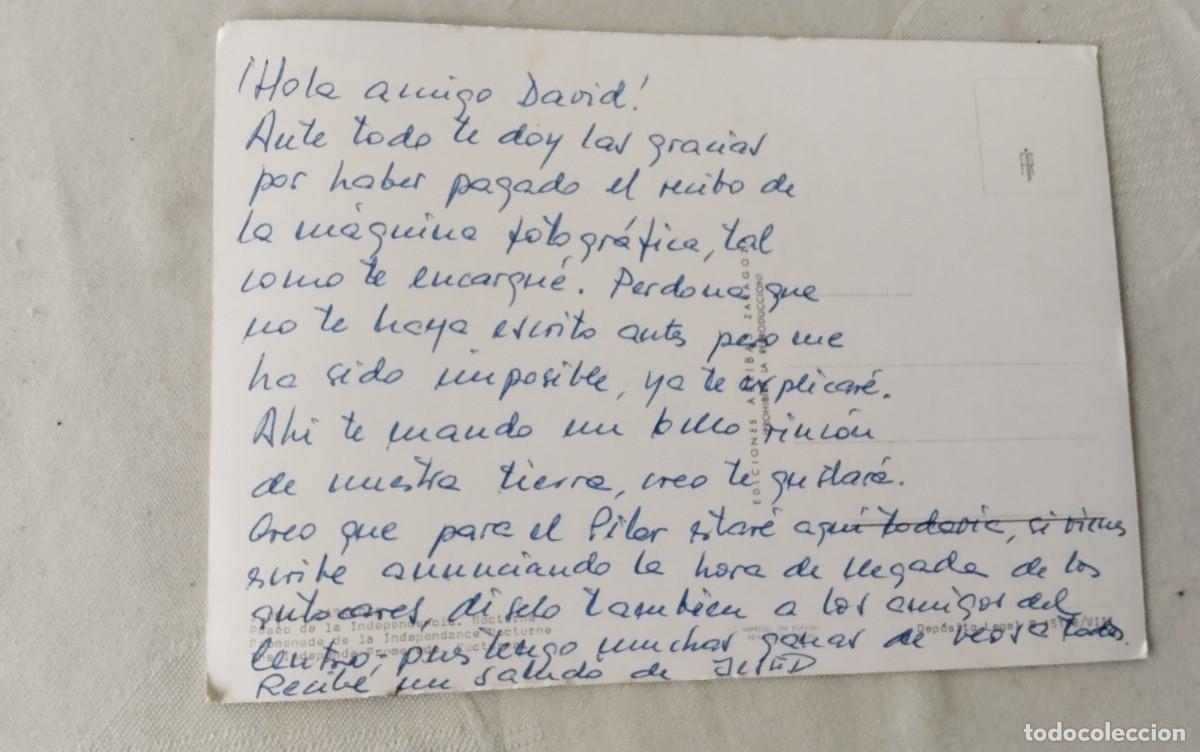 ¡Hola amigo David!
Ante todo te doy las gracias
por haber pagado el recibo de
la máquina fotográfica, tal
como te encargué. Perdona que
no te haya escrito antes pero me
ha sido imposible, ya te explicaré.
Ahi te mando un bello rincón
de nuestra tierra, creo te gustará.
Creo que para el Pilar estaré aquí todavía, si vienes
escribe anunciando la hora de llegada de los
autocares, diselo también a los amigos del
Centro, pues tengo muchas ganas de veros a todos.
Recibé un saludo de
EDICIONES ARRIBAS ZARAGOZA
PROHIBIDA LA REPRODUCCION
Paseo de la Independencia. Nocturna
Promenade de la Independance. Nocturne
Depósito Legal
todocoleccion